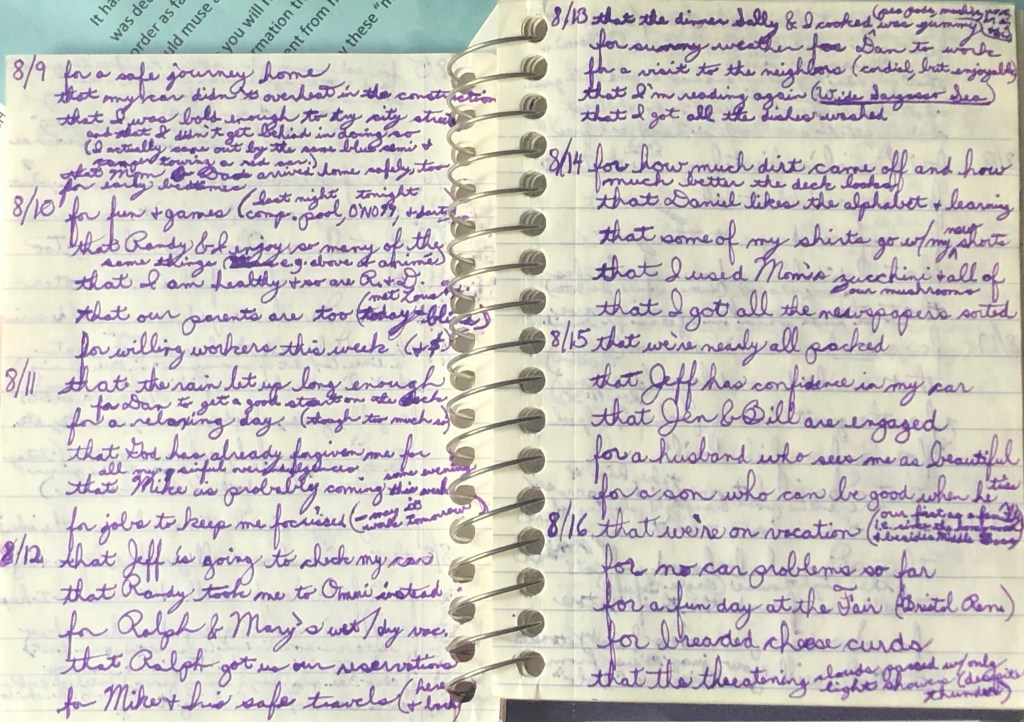 It ha
was de
order as fa
uld muse a
you will h
rmation th
ent from h
y these "n
8/9 for a safe journey home
that my car didn't overheat in the construction
that I was bold enough to try city streets
and that I didn't get behind in doing so
(I actually came out by the same blue semi &
towing a red car.)
that Mom & Dad arrived home safely, too
for early bedtimes
8/10 for fun & games (last night tonight
comp. pool, ONO 99, & darts
that Randy & I enjoy so many of the
same things (e.g. above & anime)
that I am healthy & so are R. & D.
that our parents are too (today
for willing workers this week (+ $)
8/11 that the rain let up long enough
for Dan to get a good start on the deck
for a relaxing day (though too much is)
that God has already forgiven me for
all my
that Mike is probably coming this week
for jobs to keep me focused (may it
work tomorrow
8/12 that Jeff is going to check my car
that Randy took me to Omni instead
for Ralph & Mary's wet/dry vac.
that Ralph got us our reservations
for Mike & his safe travels (here
& back)
8/13 that the dinner Sally & I cooked was yummy
for sunny weather for Dan to work
for a visit to the neighbors (cordial, but enjoyable)
that I'm reading again (Wide Sargasso Sea)
that I got all the dishes washed
8/14 for how much dirt came off and how
much better the deck looks
that Daniel likes the alphabet & learning
that some of my shirts go w/ my new shorts
that I used Mom's zucchini & all of
our mushrooms
that I got all the newspapers sorted
8/15 that we're nearly all packed
that Jeff has confidence in my car
that Jen & Bill are engaged
for a husband who sees me as beautiful
for a son who can be good when he tries
8/16 that we're on vacation (our first as a family
for no car problems so far
for a fun day at the Fair (Bristol Rena)
for breaded cheese curds
that the threatening clouds passed w/ only
light showers (despite
thunder)